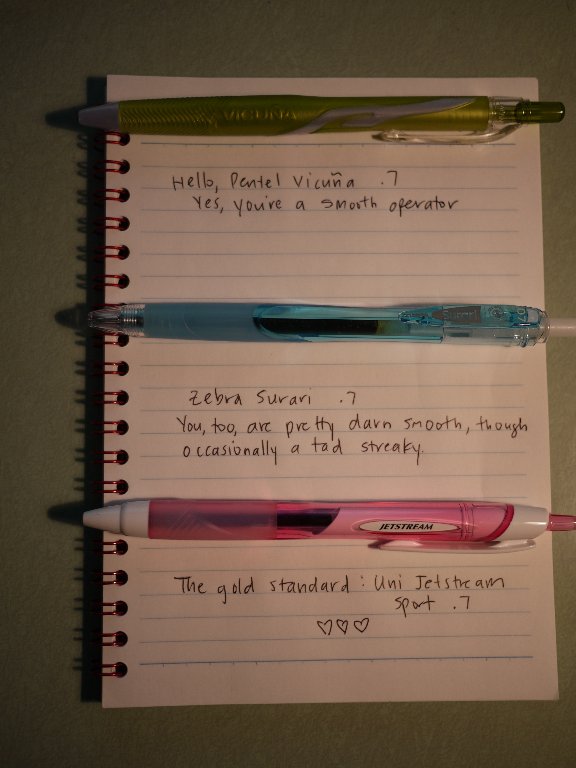 VICUÑA
Hello, Pentel Vicuña .7
Yes, you're a smooth operator
Surari
Zebra Surari .7
You, too, are pretty darn smooth, though
occasionally a tad streaky.
JETSTREAM
The gold standard : Uni Jetstream
Sport .7
♡♡♡